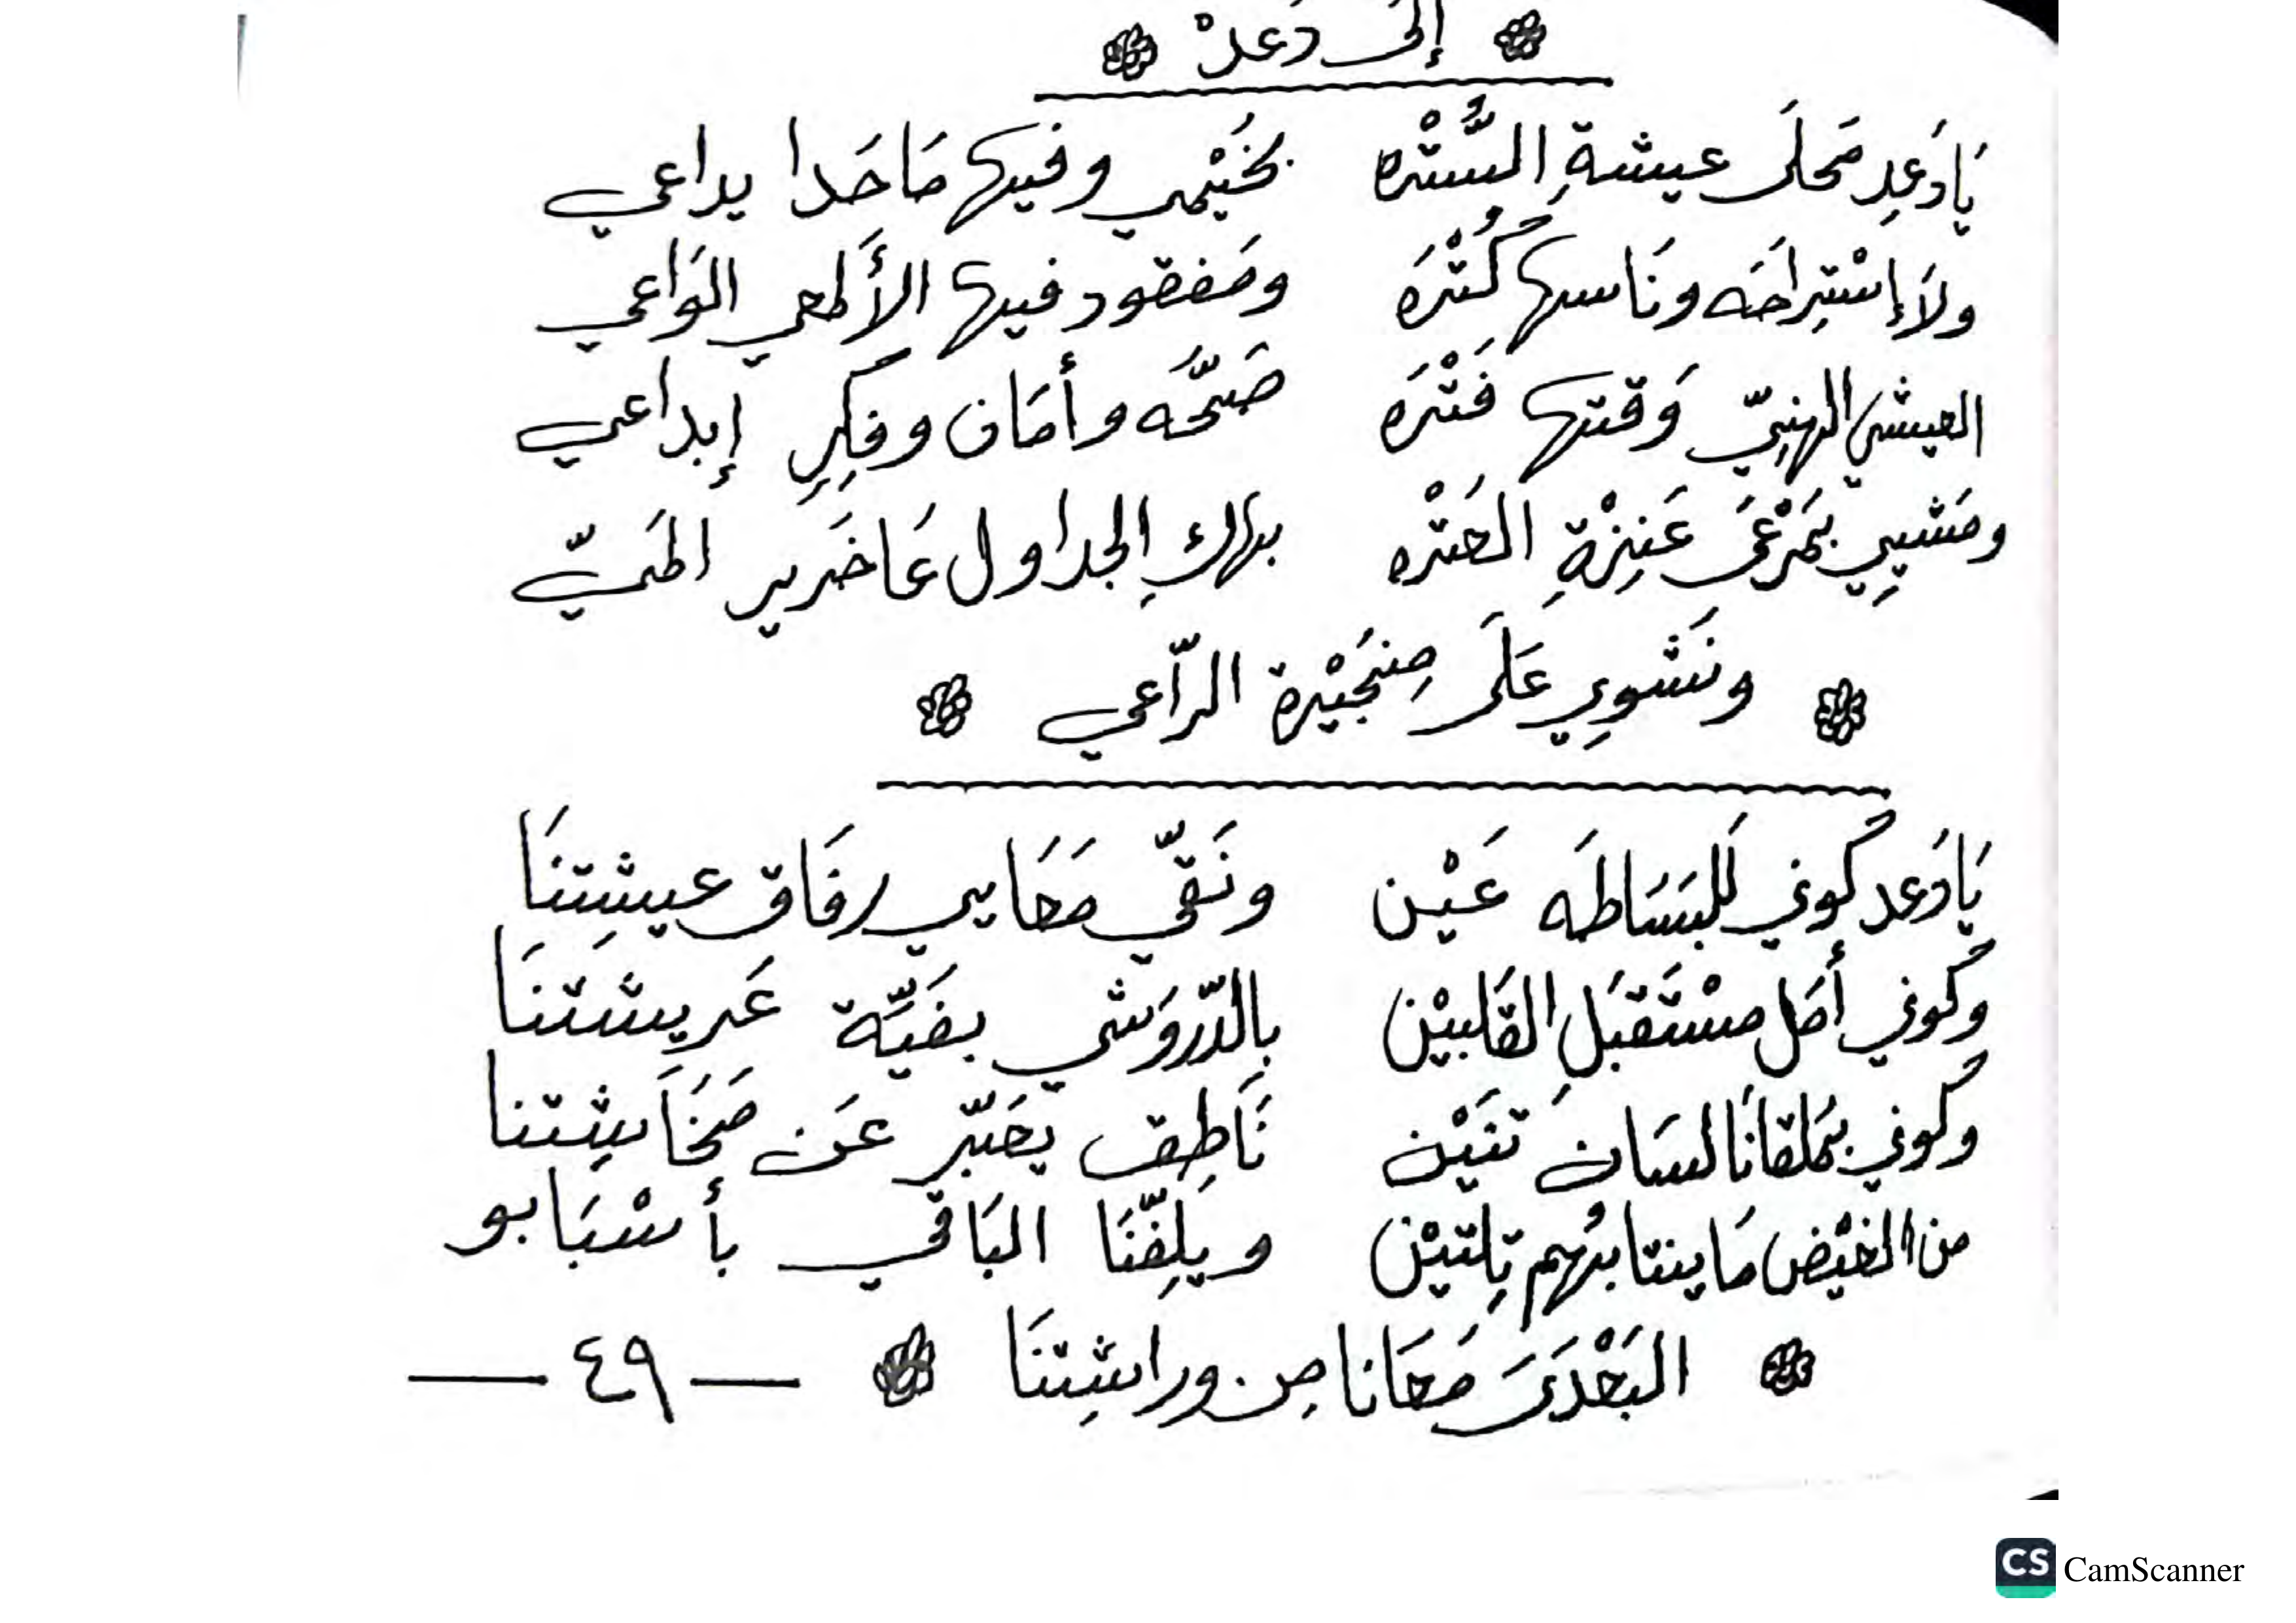 إلى دَعدْ
يَا دَعِد مَحلَى عيشةِ السُّتْره بخَيْمِي وفيها مَا حَدا يراعي
ولاَ إسْتِراحَه ونَاسها كُتْرَه ومَفقود فيها الأَلمعي الوَاعي
العيشي الهنِيّ وَقتها فَتْرَه صَحَّه وأمَان وفِكِرِ إبداعي
ومَشيِي بمَرْعَى عَنِزْةِ العَتْره بهاكِ الجداول عَا خَرير المَيّ
ونَشوِي عَلَى مِنجَيْرة الرّاعي
يَا دَعد كُوني للبَسَاطَه عَيْن ونَقّي مَعَايي رفَاق عيشِتنَا
وكُوني أمَل مسْتَقبَلِ القَلبيْن بالدّروَشي بفَيّة عَريشَتنَا
وكُوني بمَلقانَا لسَان تنَيْن نَاطِق يخَبّر عَن مَخَابِيشتنا
من الغَيْض مَا ينتابهُم تِلتيْن ويَلِفّنَا البَاقي بأسْبَابو
البَعْدَىَ مَعَانا مِن وراشِتنَا
— ٤٩ —
CS CamScanner